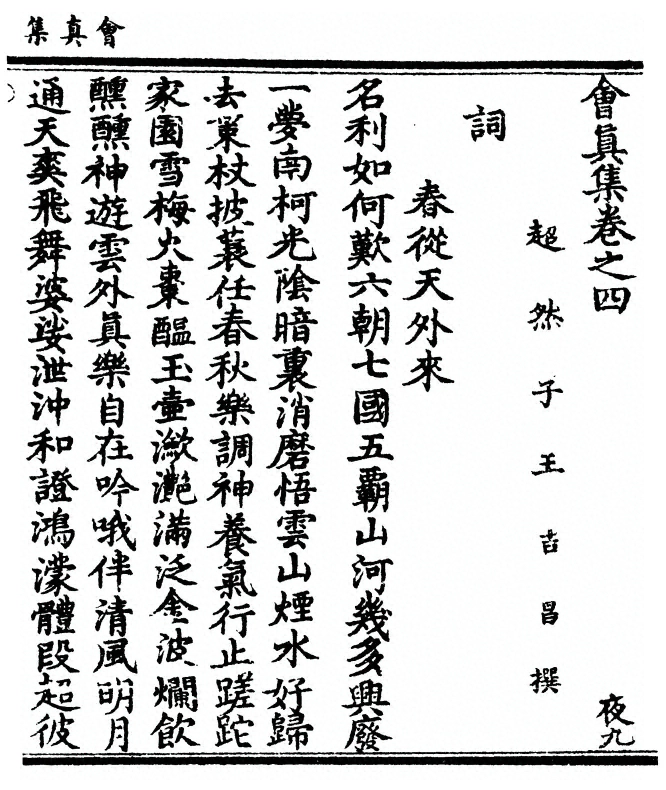 集真會
會真集卷之四
夜九
超然子王吉昌撰
詞
春從天外來
名利如何歎六朝七國五霸山河幾多興廢
一夢南柯光陰暗裏消磨悟雲山煙水好歸
去䇿杖披蓑任春秋樂調神養氣行止蹉跎
家園雪梅火棗醖玉壺瀲灩滿泛金波爛飲
醺醺神遊雲外真樂自在吟哦伴清風明月
通天爽飛舞婆娑泄沖和證鴻濛體段超彼